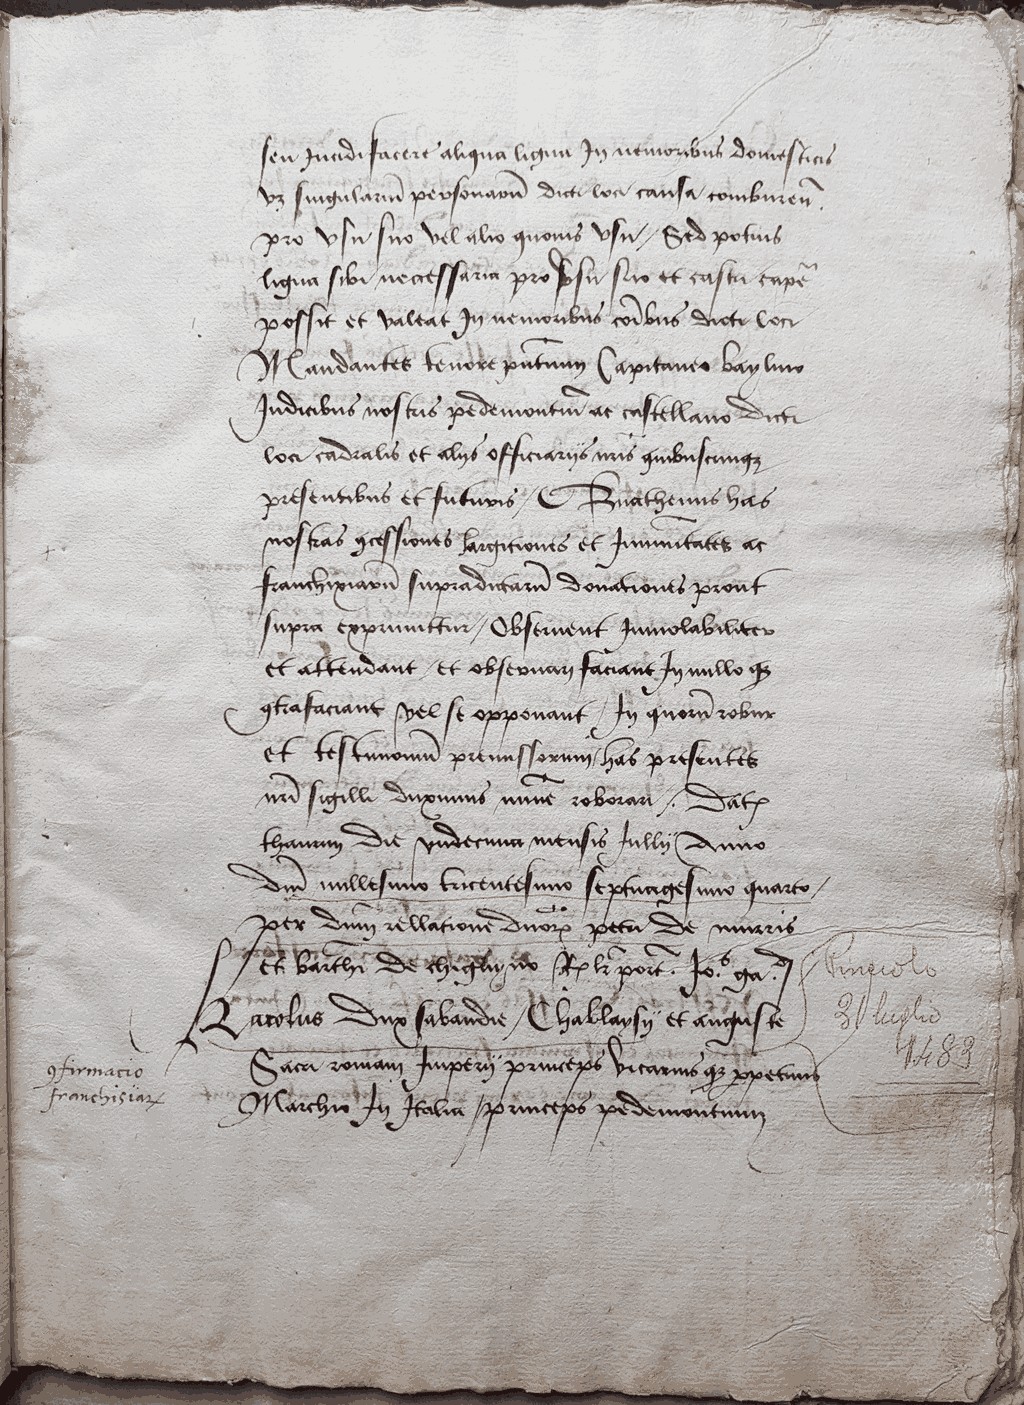 seu Incidi facere aliqua ligna In nemoribus domesticis
vz singulariu͂ personaru͂ dicti loci causa combureñ.
pro vsu suo vel alio quouis vsu / Sed potius
ligna sibi neccessaria pro vsu suo et castri cape͂
possit et valeat In nemoribus coi͂bus dicti loci
Mandantes tenore pñtium Capitaneo bayliuo
Iudicibus nostris pedemontiu͂ ac castellano dicti
loci cadralis et alijs officiarijs nr͂is quibuscunqz
presentibus et futuris / Quathenus has
nostras ꝯcessiones largitiones et Immu͂itates ac
franchixiaru͂ supradictaru͂ donationes prout
supra exprimittur / Obseruent Inuiolabiliter
et attendant / et obseruari faciant In nullo qz
ꝯtrafaciant vel se opponant / In quoru͂ robur
et testimoniu͂ premissorum / has presentes
nr͂i sigilli duximus mu͂ie roborari /. Datꝫ
thaurini die vndecima mensis Iullij Anno
dñi millesimo tricentesimo septuagesimo quarto /
per dñm rellatione dñorꝝ petri de murris
et barthi͂ de chignino Rx lr͂ port͂. Io.s ga.
Karolus dux sabaudie / Chablaysij et auguste
Sacri romani Imperij princeps vicariusqz ꝑpetuus
Marchio In Italia / princeps pedemontium
ꝯfirmacio
franchisiarꝝ
Pinerolo
31 luglio
1483